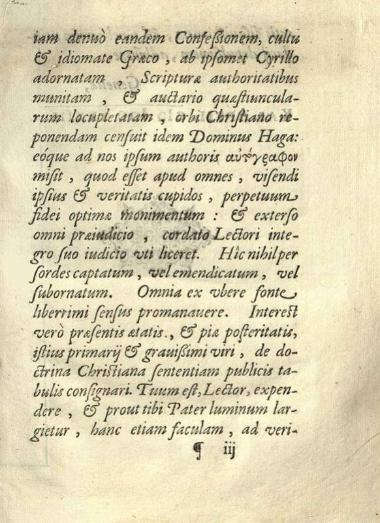 iam denuò eandem Confeßionem, cultu
& idiomate Græco, ab ipsomet Cyrillo
adornatam, Scripturæ authoritatibus
munitam, & auctario quæstiuncula-
rum locupletatam, orbi Christiano re-
ponendam censuit idem Dominus Haga:
eóque ad nos ipsum authoris αὐτόγραφον
misit, quod esset apud omnes, visendi
ipsius & veritatis cupidos, perpetuum
fidei optimæ monimentum: & exterso
omni præiudicio, cordato Lectori inte-
gro suo iudicio vti liceret. Hîc nihil per
sordes captatum, vel emendicatum, vel
subornatum. Omnia ex vbere fonte
liberrimi sensus promanavere. Interest
verò præsentis ætatis, & piæ posteritatis,
istius primarij & gravißimi viri, de do-
ctrina Christiana sententiam publicis ta-
bulis consignari. Tuum est, Lector, expen-
dere, & prout tibi Pater luminum lar-
gietur, hanc etiam faculam, ad veri-
¶ iij